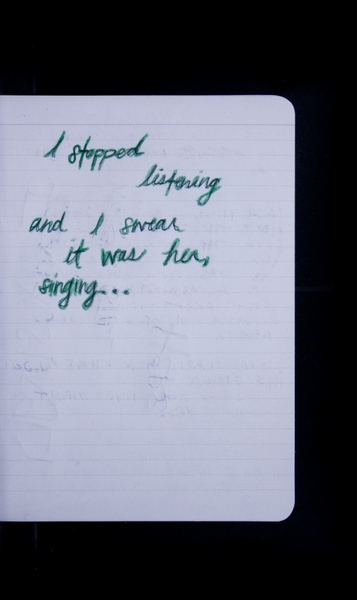 I stopped
listening
and I swear
it was her,
singing...